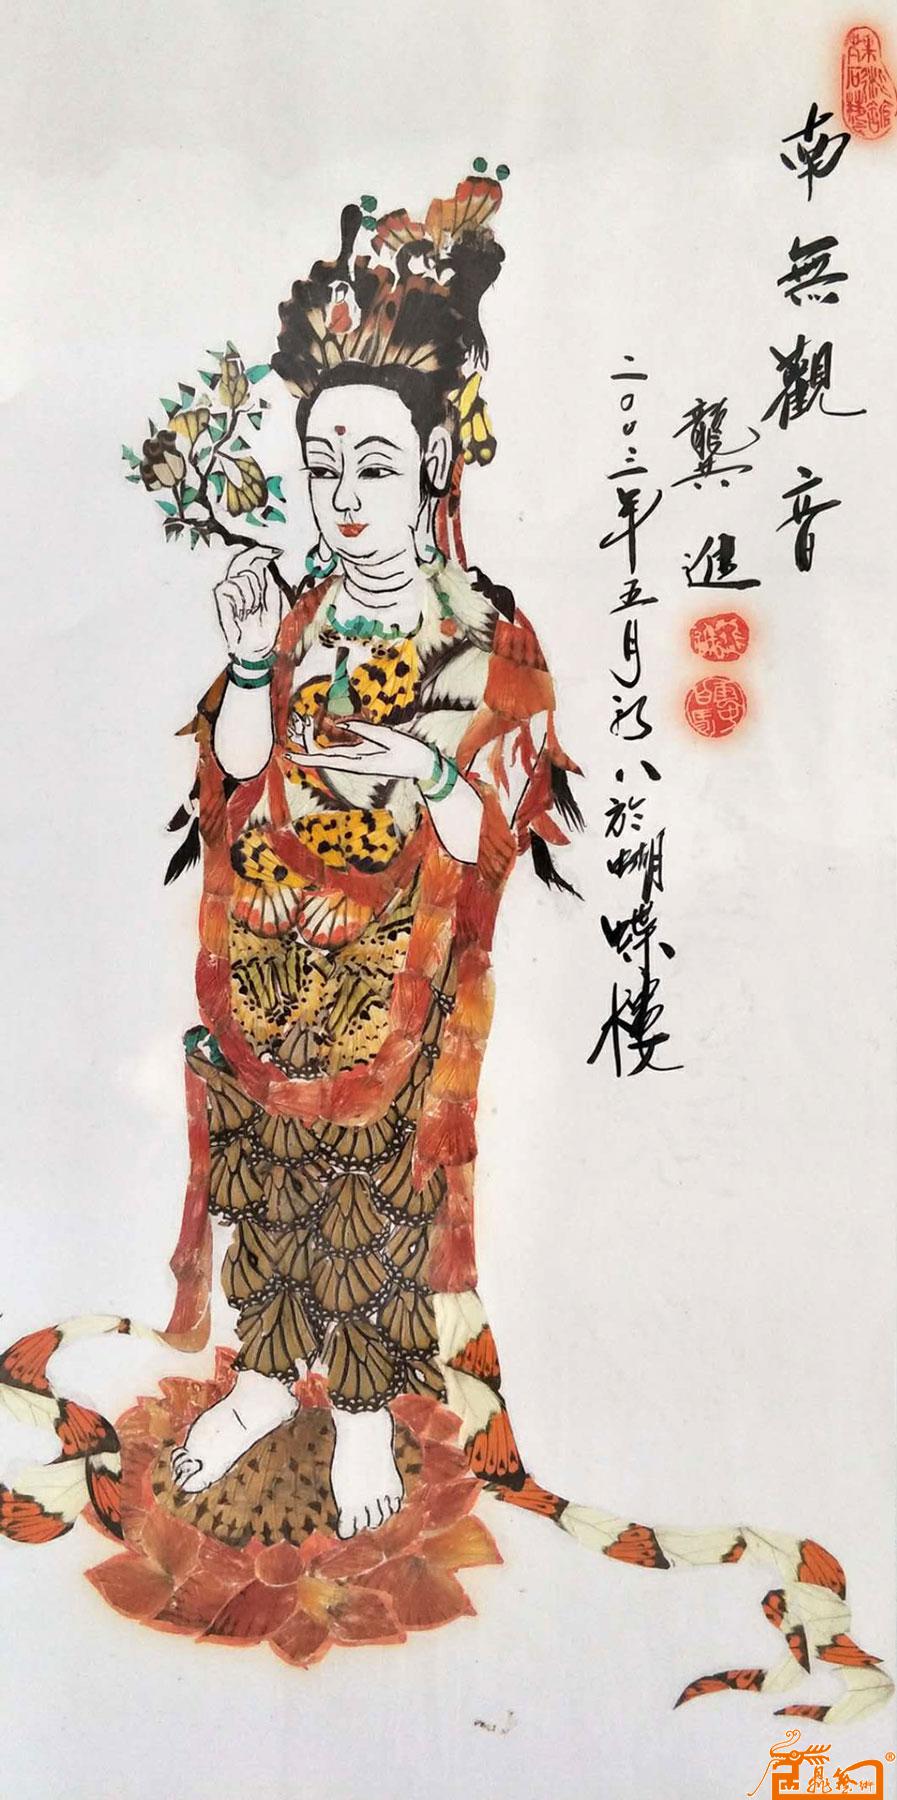 南無觀音
龔進
二〇〇三年五月初八於蝴蝶樓